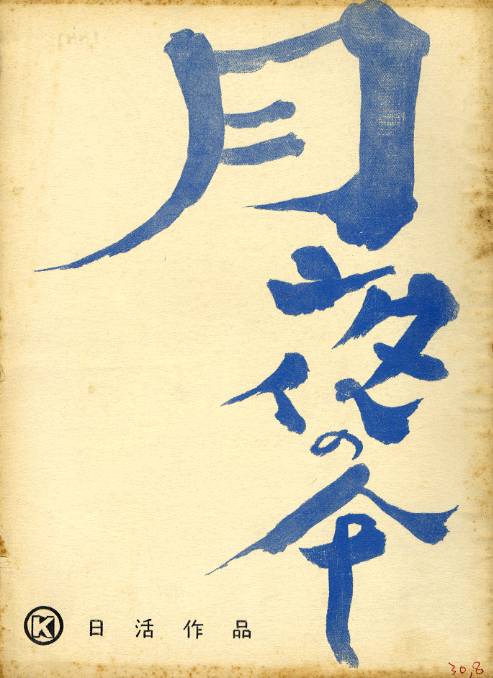 月夜の傘
K 日活作品
30,8